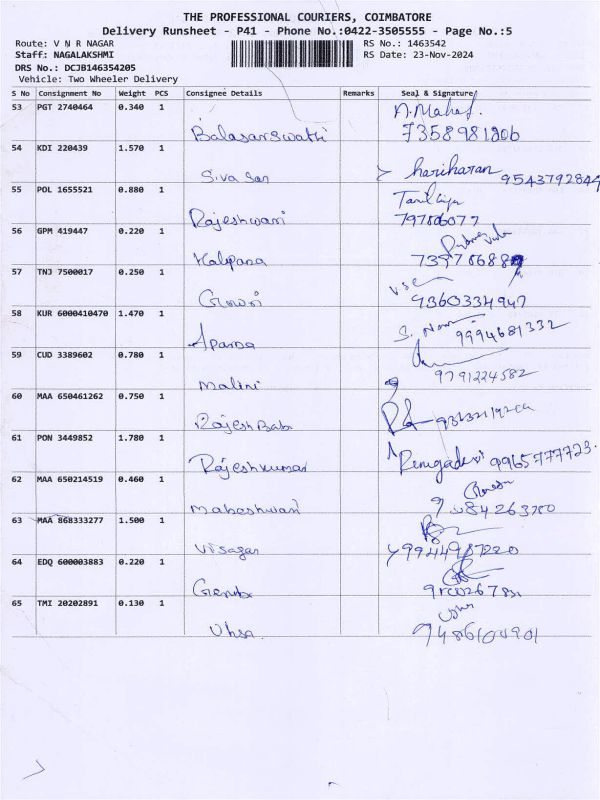 THE PROFESSIONAL COURIERS, COIMBATORE
Delivery Runsheet - P41 - Phone No.:0422-3505555 - Page No.:5
Route: V N R NAGAR
Staff: NAGALAKSHMI
DRS No.: DCJB146354205
Vehicle: Two Wheeler Delivery
RS No.: 1463542
RS Date: 23-Nov-2024
S No Consignment No Weight PCS Consignee Details Remarks Seal & Signature
53 PGT 2740464 0.340 1
Balasarswathi 7358981806
54 KDI 220439 1.570 1
Siva San hariharan 9543792844
55 POL 1655521 0.880 1
Rajeshwari
56 GPM 419447 0.220 1
Kalpana
57 TNJ 7500017 0.250 1
Gowri 9360334947
58 KUR 6000410470 1.470 1
Aparna 9994681332
59 CUD 3389602 0.780 1
Malini 9791224582
60 MAA 650461262 0.750 1
Rajesh Babu
61 PON 3449852 1.780 1
Rajeshkumar Renugadevi 9965777723.
62 MAA 650214519 0.460 1
Maheshwari
63 MAA 868333277 1.500 1
Visagan
64 EDQ 600003883 0.220 1
65 TMI 20202891 0.130 1
Uhsa. 9486104901